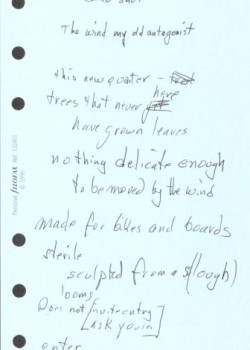 The wind my old antagonist
this new quarter –
here
trees that never
have grown leaves
nothing delicate enough
to be moved by the wind
made for bikes and boards
sterile
sculpted from a s(lough)
Does not invite entry
[Ask you in]
enter
Personal FILOFAX
© 1990